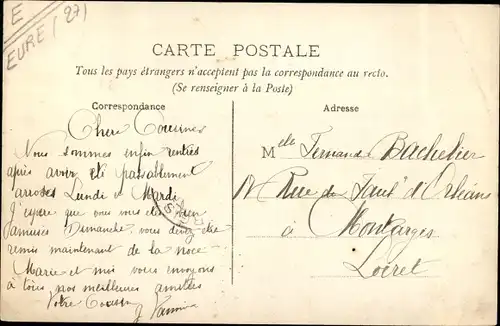 E
EURE (27)
CARTE POSTALE
Tous les pays étrangers n'acceptent pas la correspondance au recto.
(Se renseigner à la Poste)
Correspondance
Adresse
Nous sommes enfin rentrés
après avoir été passablement
arrosés Lundi et Mardi
J'espère que vous vous êtes bien
amusés Dimanche, vous devez être
remis maintenant de la noce
Marie et moi vous envoyons
à tous nos meilleures amitiés
Votre Cousin
Melle Fernande Bachelier
Rue du Faub d'Orléans
à Montargis
Loiret